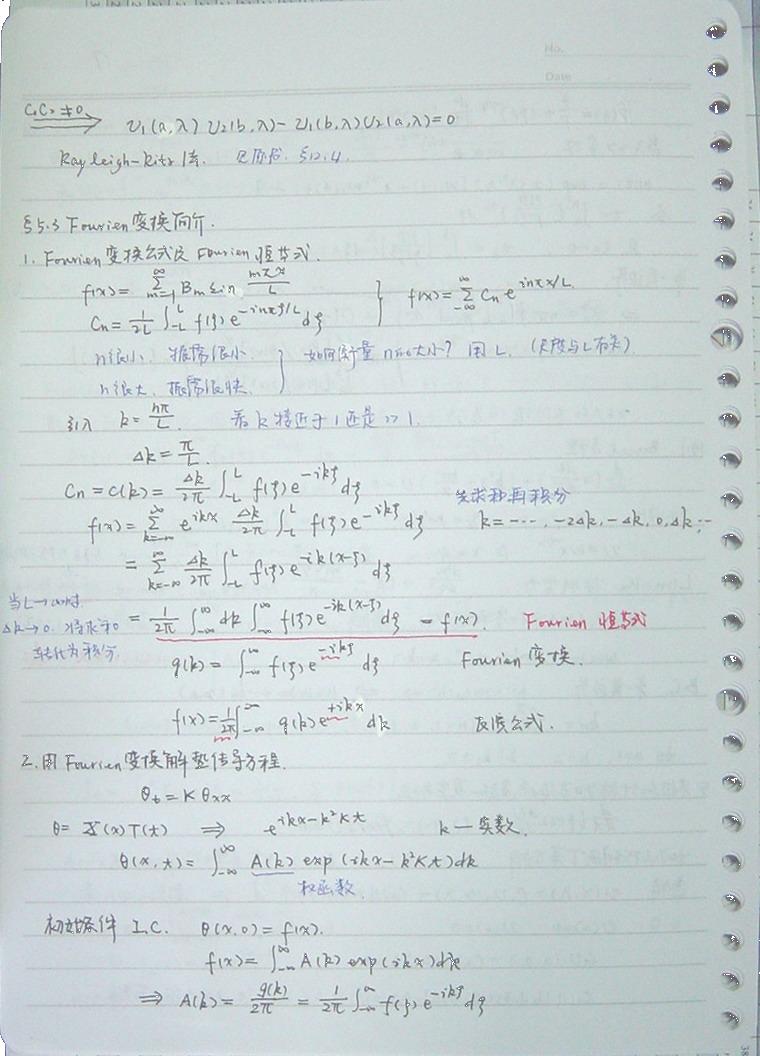 No.
Date
C₁C₂ ≠ 0 ⟹ U₁(a,λ) U₂(b,λ) − U₁(b,λ) U₂(a,λ) = 0
Rayleigh-Ritz 法. 见原书. §12.4.
§5.3 Fourien 变换简介.
1. Fourien 变换公式及 Fourien 恒等式.
f(x) = ∑_{m=1}^{∞} Bm sin mπx/L } f(x) = ∑_{-∞}^{∞} Cn e^{inπx/L}
Cn = 1/2L ∫_{-L}^{L} f(ξ) e^{-inπξ/L} dξ
n很小, 振荡很小 } 如何衡量 n的大小? 用 L. (尺度与L有关)
n很大, 振荡很快.
引入 k = nπ/L. 看 k 接近于 1 还是 >> 1.
Δk = π/L.
Cn = C(k) = Δk/2π ∫_{-L}^{L} f(ξ) e^{-ikξ} dξ
先求和再积分
f(x) = ∑_{k=-∞}^{∞} e^{ikx} Δk/2π ∫_{-L}^{L} f(ξ) e^{-ikξ} dξ k = ⋯, -2Δk, -Δk, 0, Δk, ⋯
= ∑_{k=-∞}^{∞} Δk/2π ∫_{-L}^{L} f(ξ) e^{-ik(x-ξ)} dξ
当 L→∞时.
Δk→0. 将求和
转化为积分.
= 1/2π ∫_{-∞}^{∞} dk ∫_{-∞}^{∞} f(ξ) e^{-ik(x-ξ)} dξ = f(x). Fourien 恒等式
g(k) = ∫_{-∞}^{∞} f(ξ) e^{-ikξ} dξ Fourien 变换.
f(x) = 1/2π ∫_{-∞}^{∞} g(k) e^{+ikx} dk 反演公式.
2. 用 Fourien 变换解热传导方程.
θt = K θxx
θ = X(x) T(t) ⟹ e^{ikx-k²Kt} k — 实数.
θ(x,t) = ∫_{-∞}^{∞} A(k) exp (ikx - k²Kt) dk
权函数.
初始条件 I.C. θ(x,0) = f(x).
f(x) = ∫_{-∞}^{∞} A(k) exp(ikx) dk
⟹ A(k) = g(k)/2π = 1/2π ∫_{-∞}^{∞} f(ξ) e^{-ikξ} dξ